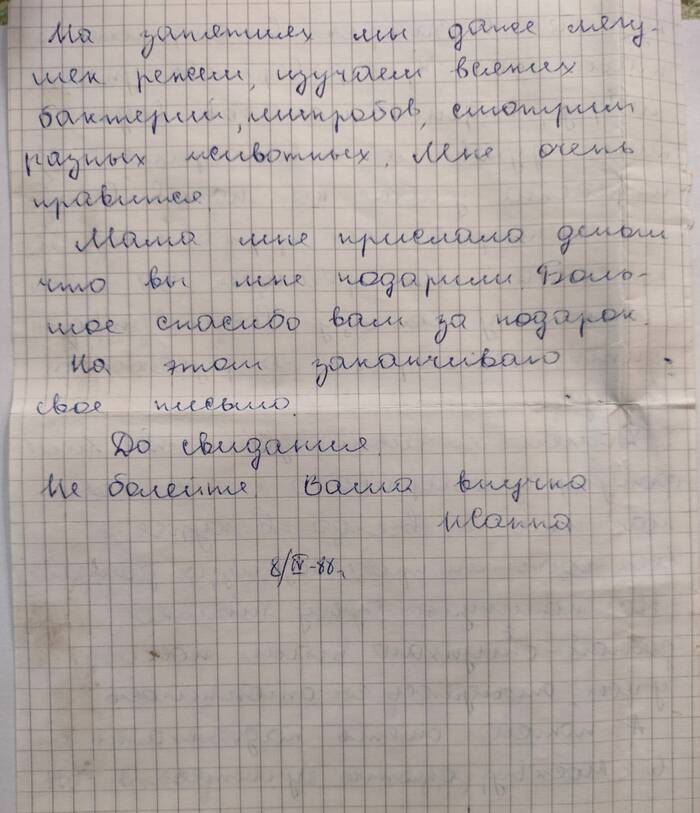 На занятиях мы даже лягу-
шек режем, изучаем всяких
бактерий, микробов, смотрим
разных животных. Мне очень
нравится.
Мама мне прислала деньги
что вы мне подарили. Боль-
шое спасибо вам за подарок.
На этом заканчиваю
свое письмо.
До свидания.
Не болейте. Ваша внучка
Жанна
8/IV-88г.